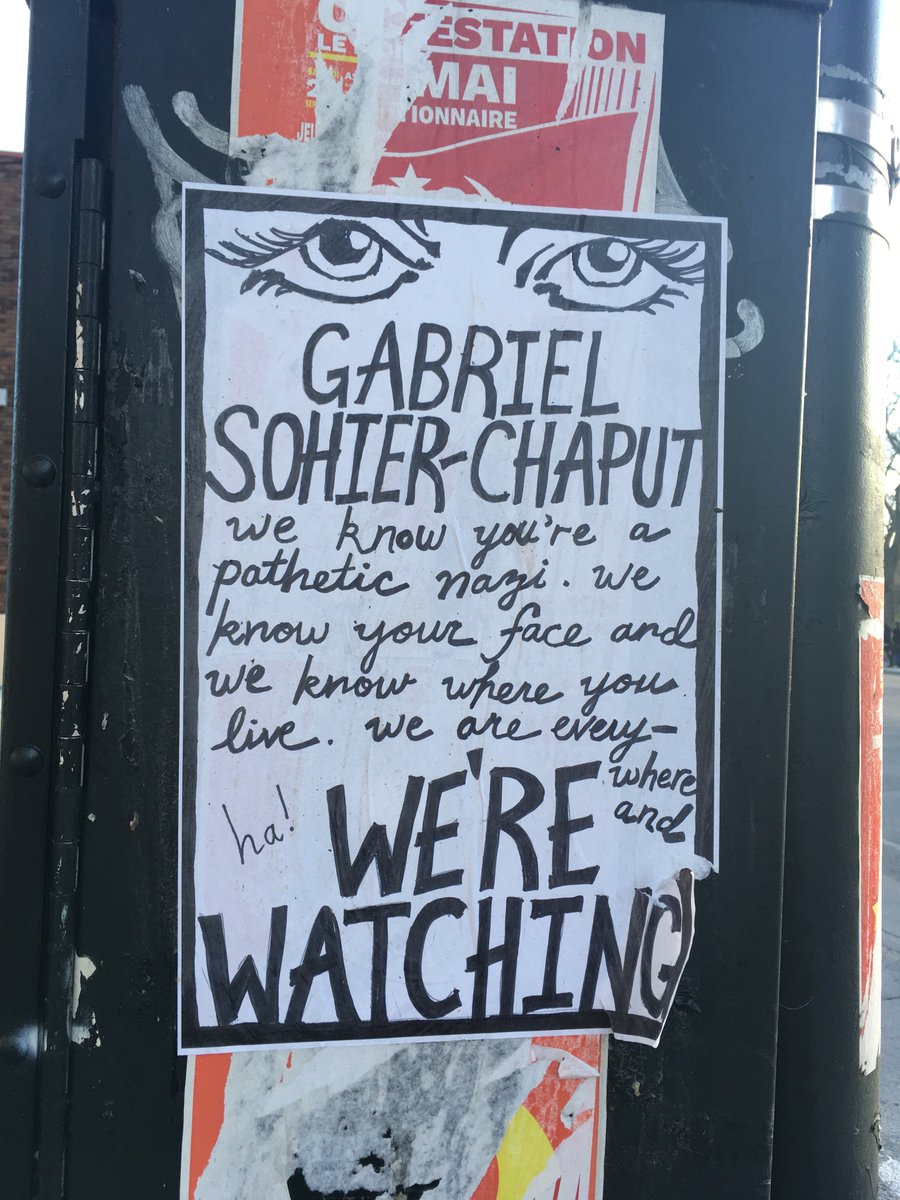 ESTATION
LE
MAI
TIONNAIRE
GABRIEL
SOHIER-CHAPUT
we know you're a
pathetic nazi. we
know your face and
we know where you
live. we are every-
where
and
ha!
WE'RE
WATCHING